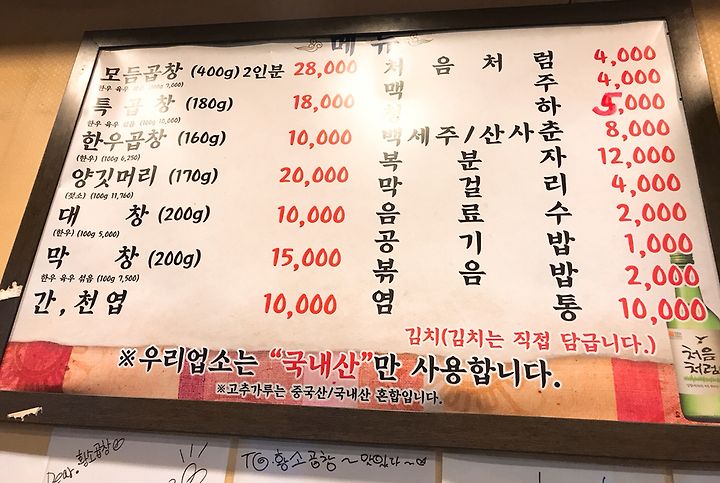 메뉴
모듬곱창 (400g) 2인분 28,000
한우 육우 섞음 (100g 7,000)
특곱창 (180g) 18,000
한우 육우 섞음 (100g 10,000)
한우곱창 (160g) 10,000
(한우) (100g 6,250)
양깃머리 (170g) 20,000
(젖소) (100g 11,760)
대창 (200g) 10,000
(한우) (100g 5,000)
막창 (200g) 15,000
한우 육우 섞음 (100g 7,500)
간, 천엽 10,000
처음처럼 4,000
맥주 4,000
하 5,000
백세주/산사춘 8,000
복분자 12,000
막걸리 4,000
음료수 2,000
공기밥 1,000
볶음밥 2,000
염통 10,000
김치(김치는 직접 담급니다.)
※우리업소는 "국내산"만 사용합니다.
※고추가루는 중국산/국내산 혼합입니다.
처음처럼
Dear. 황소곱창
TO. 황소곱창 ~ 맛있다 ~